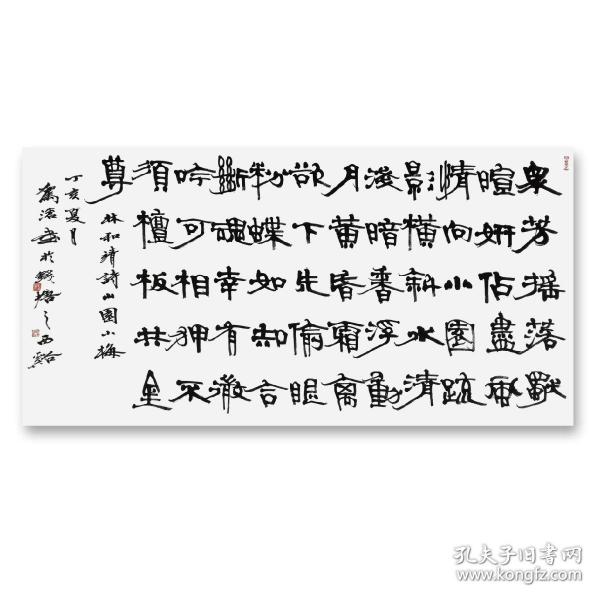 衆芳搖落獨
暄妍佔盡風
情向小園疏
影橫斜水清
淺暗香浮動
月黃昏霜禽
欲下先偷眼
粉蝶如知合
斷魂幸有微
吟可相狎不
須檀板共金
尊
林和靖詩山園小梅
丁亥夏月
書於錢塘之西谿
孔夫子旧书网
www.kongfz.com